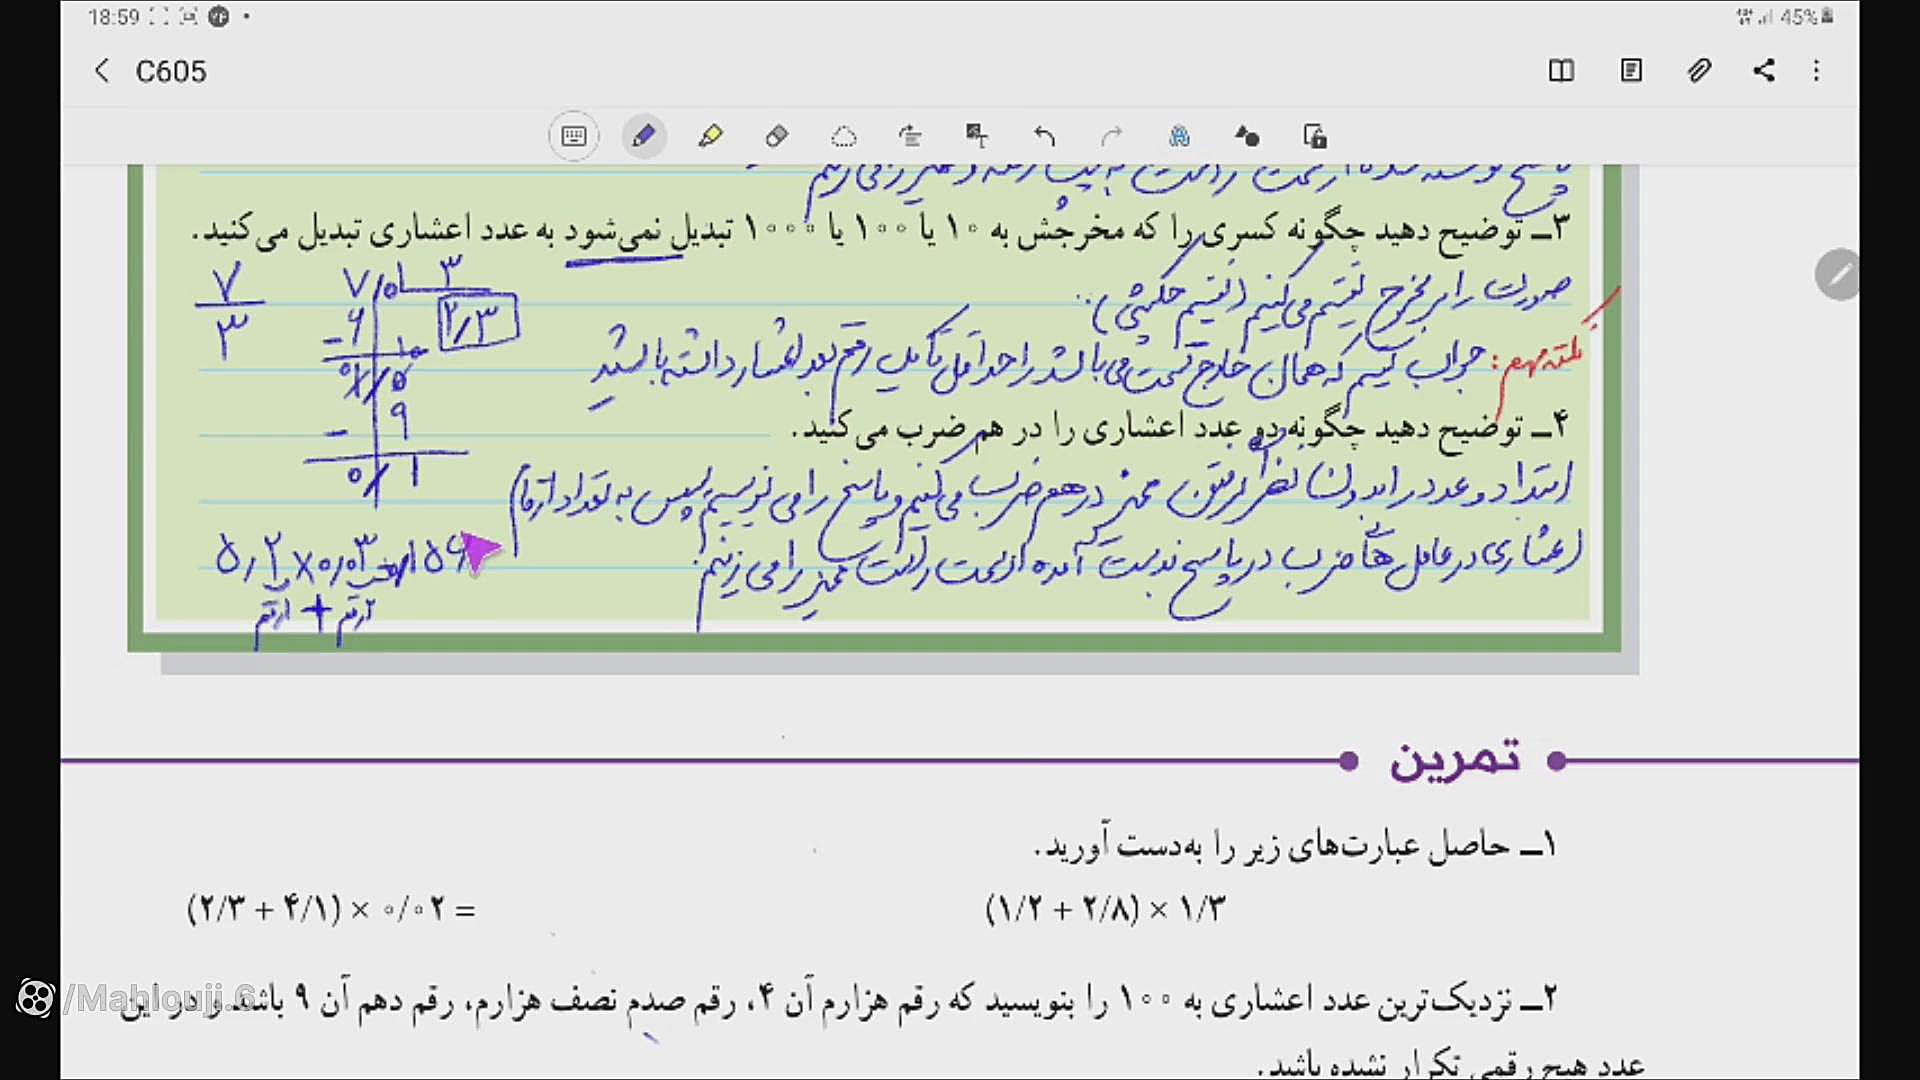 18:59
45%
C605
۳ــ توضیح دهید چگونه کسری را که مخرجش به ۱۰ یا ۱۰۰ یا ۱۰۰۰ تبدیل نمی‌شود به عدد اعشاری تبدیل می‌کنید.
صورت را بر مخرج تقسیم می‌کنیم (تقسیم حکمتی)..
نکته مهم: جواب که همان خارج قسمت می‌باشد را حداقل تا یک رقم بعد اعشار داشته باشید
۷
۳
۷/۰ ۳
۲/۳
- ۶
۱/۰
- ۹
۰/۱
۴ــ توضیح دهید چگونه دو عدد اعشاری را در هم ضرب می‌کنید.
ابتدا دو عدد را بدون در نظر گرفتن ممیز در هم ضرب می‌کنیم و پاسخ را می‌نویسیم سپس به تعداد ارقام
اعشاری در عامل های ضرب در پاسخ بدست آمده از سمت راست ممیز را می زنیم.
۵/۲ × ۰/۰۳ = ۰/۱۵۶
۱ رقم + ۲ رقم
تمرین
۱ــ حاصل عبارت‌های زیر را به‌دست آورید.
(۱/۲ + ۲/۸) × ۱/۳
(۲/۳ + ۴/۱) × ۰/۰۲ =
۲ــ نزدیک‌ترین عدد اعشاری به ۱۰۰ را بنویسید که رقم هزارم آن ۴، رقم صدم نصف هزارم، رقم دهم آن ۹ باشد و در این
عدد هیچ رقمی تکرار نشده باشد.
/Mahlouji.6